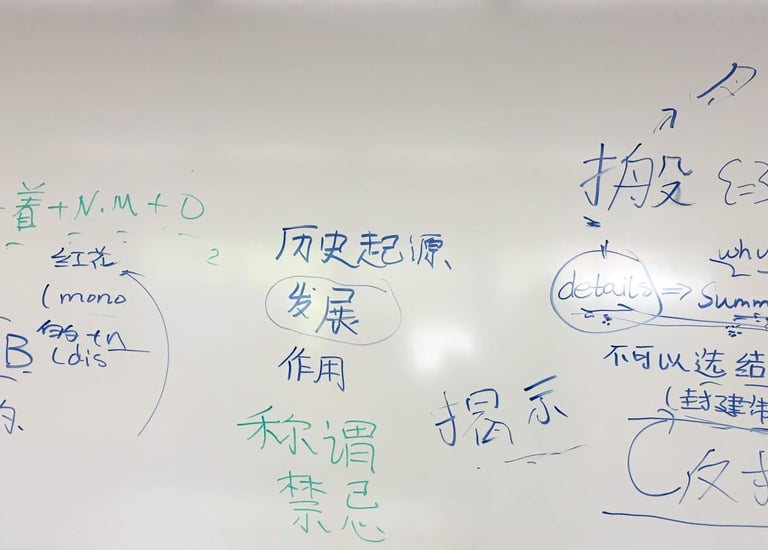 着+N.M+O
2
红花
(mono
的+n
(dis
B
历史起源
发展
作用
称谓
禁忌
揭示
搬
details ⇒ Summ
why
不可以选结
(封建
反